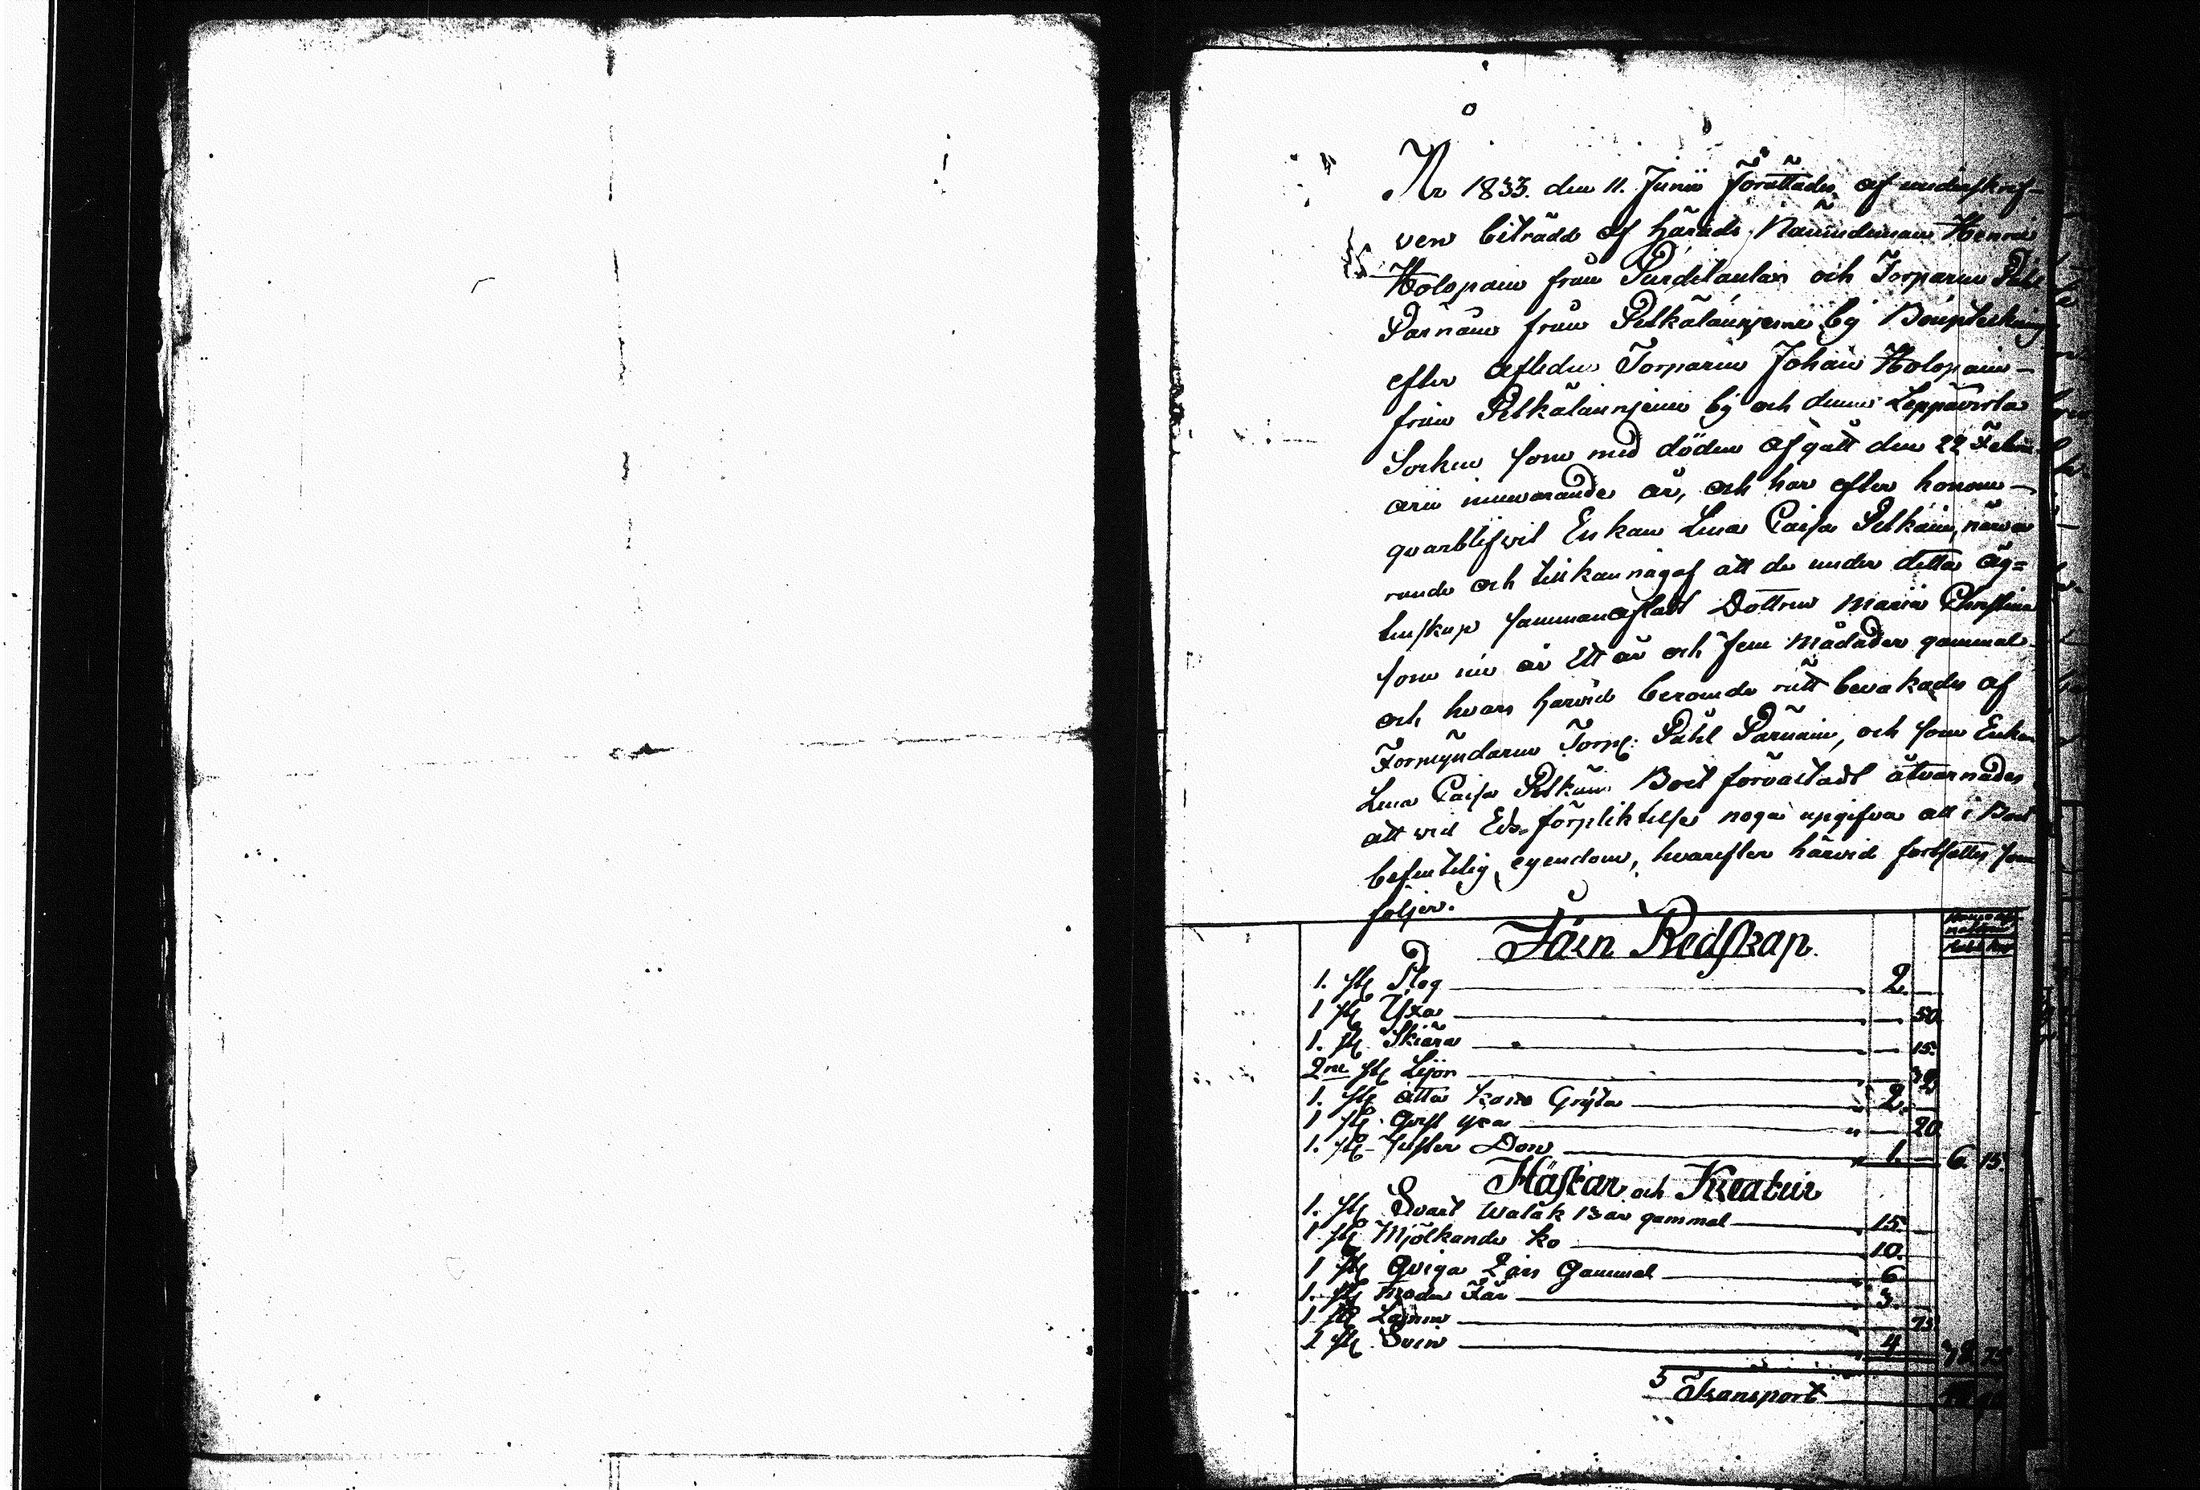 År 1833. den 11. Junii förrättades af underskref-
ven biträdd af härads Nämndeman Henric
Holopain från Purdilanlax och Torparen Påhl
Pärnäin från Petkälänniemi by Bouptekning
efter afledne Torparen Johan Holopain
från Petkälänniemi by och denne Leppävirta
Socken som med döden afgått den 22 Febru-
arii innevarande år, och har efter honom
qvarblifvit Enkan Lena Caisa Petkäin, närva
rande och tillkännagaf att de under detta äg-
tenskap sammanaflat Dottren Maria Christina
som nu är Ett år och fem Månader gammal
och hvars härvid beroende rätt bevakades af
Förmyndaren Torp: Påhl Pärnäin, och som Enkan
Lena Caisa Petkäin Boet förvaltadt åtvarnades
att vid Eds förpliktelse noga upgifva all i Boet
befintelig egendom, hvarefter härvid fortsattes som
följer.
Järn Redskap.
1. st Plog 2.
1 st Yxa 50.
1. st Skiära 15.
2ne st Lijor
1. st åtta kans Gryta 2.
1 st qvist yxa 20
1. st Don 1. 6. 15.
Hästar och Kreatur
1. st Svart Walak 13 år gammal 15.
1 st Mjölkande ko 10.
1 st Qviga 2 års Gammal 6
1. st moder Får 3.
1 st 75
1 st Svin 4
Transport